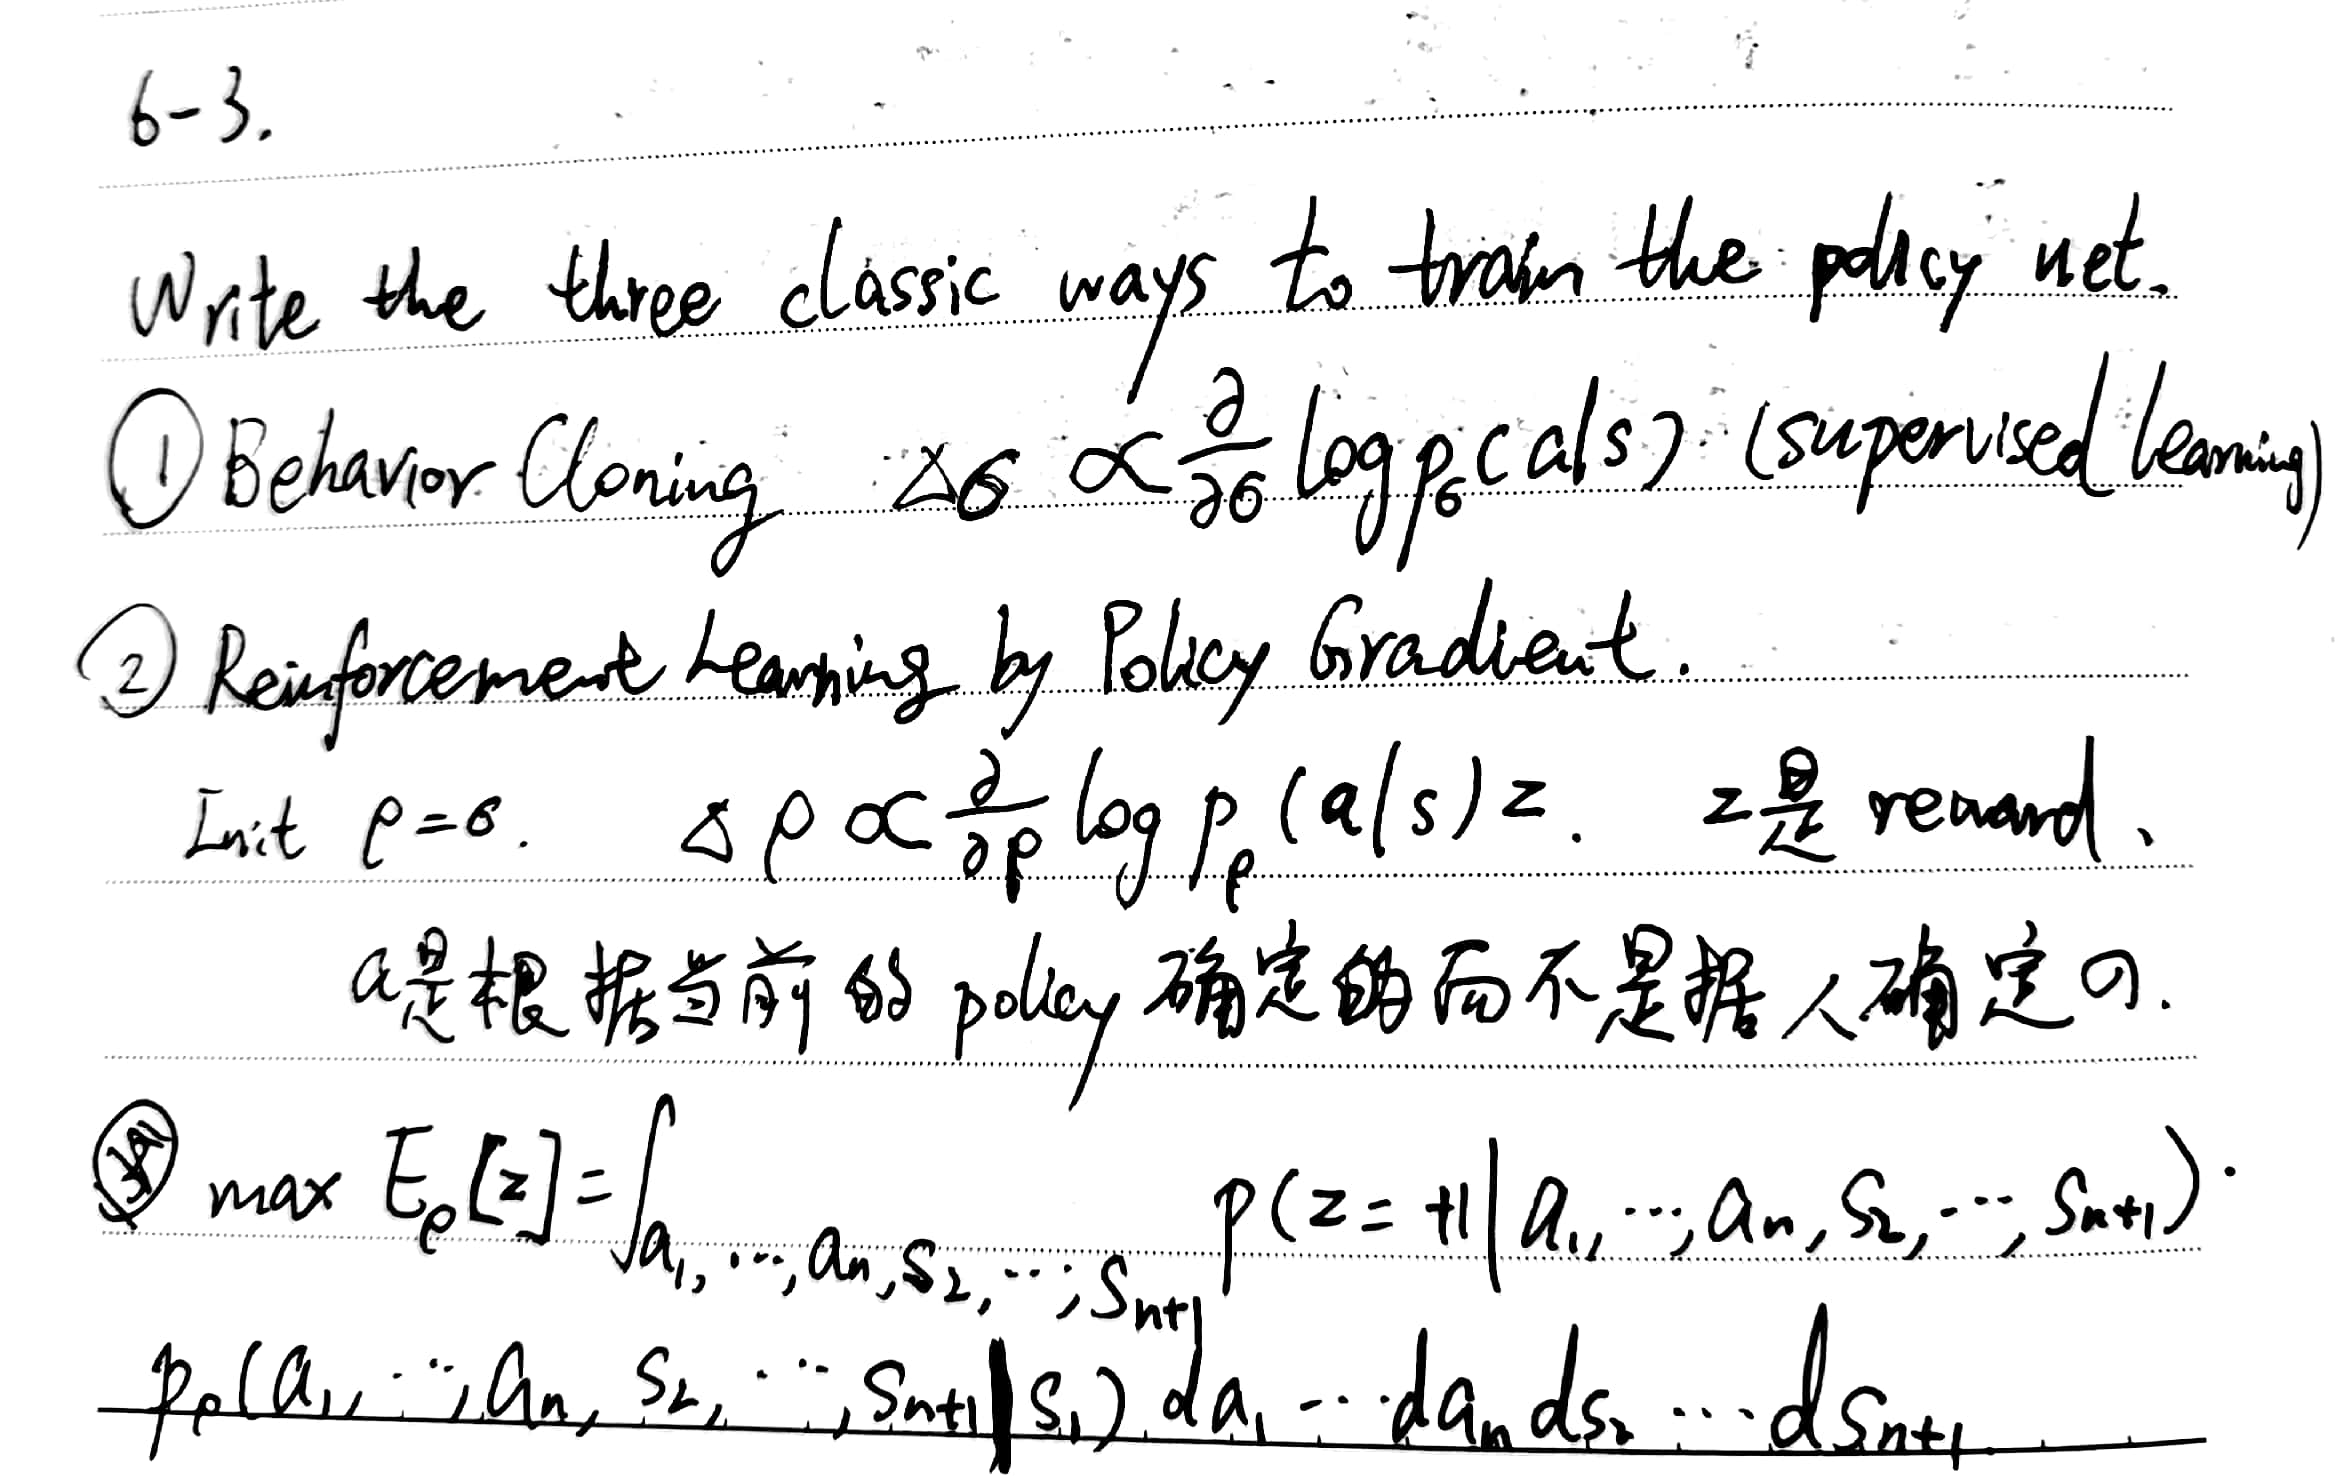 6-3.
Write the three classic ways to train the policy net.
① Behavior Cloning Δσ ∝ ∂/∂σ log p_σ(a|s) (supervised learning)
② Reinforcement Learning by Policy Gradient.
Init ρ=σ. Δρ ∝ ∂/∂ρ log p_ρ(a|s)z. z是reward、
a是根据当前的policy确定的而不是据人确定の.
max E_ρ[z]=∫_{a₁,…,aₙ,s₂,…,sₙ₊₁} p(z=+1|a₁,…,aₙ,s₂,…,sₙ₊₁)·
p_ρ(a₁,…,aₙ,s₂,…,sₙ₊₁|s₁)da₁…daₙds₂…dsₙ₊₁